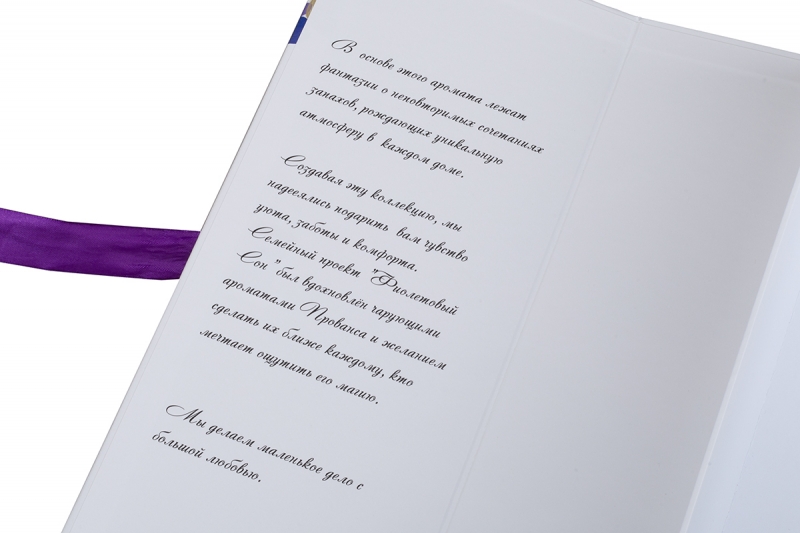 В основе этого аромата лежат
фантазии о неповторимых сочетаниях
запахов, рождающих уникальную
атмосферу в каждом доме.
Создавая эту коллекцию, мы
надеялись подарить вам чувство
уюта, заботы и комфорта.
Семейный проект "Фиолетовый
Сон "был вдохновлён чарующими
ароматами Прованса и желанием
сделать их ближе каждому, кто
мечтает ощутить его магию.
Мы делаем маленькое дело с
большой любовью.